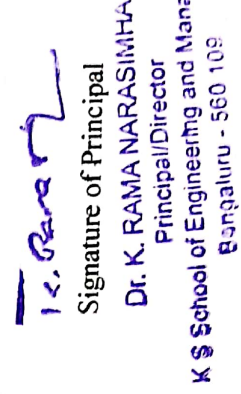 K. Rama
Signature of Principal
Dr. K. RAMA NARASIMHA
Principal/Director
K S School of Engineering and Mana
Bengaluru - 560 109